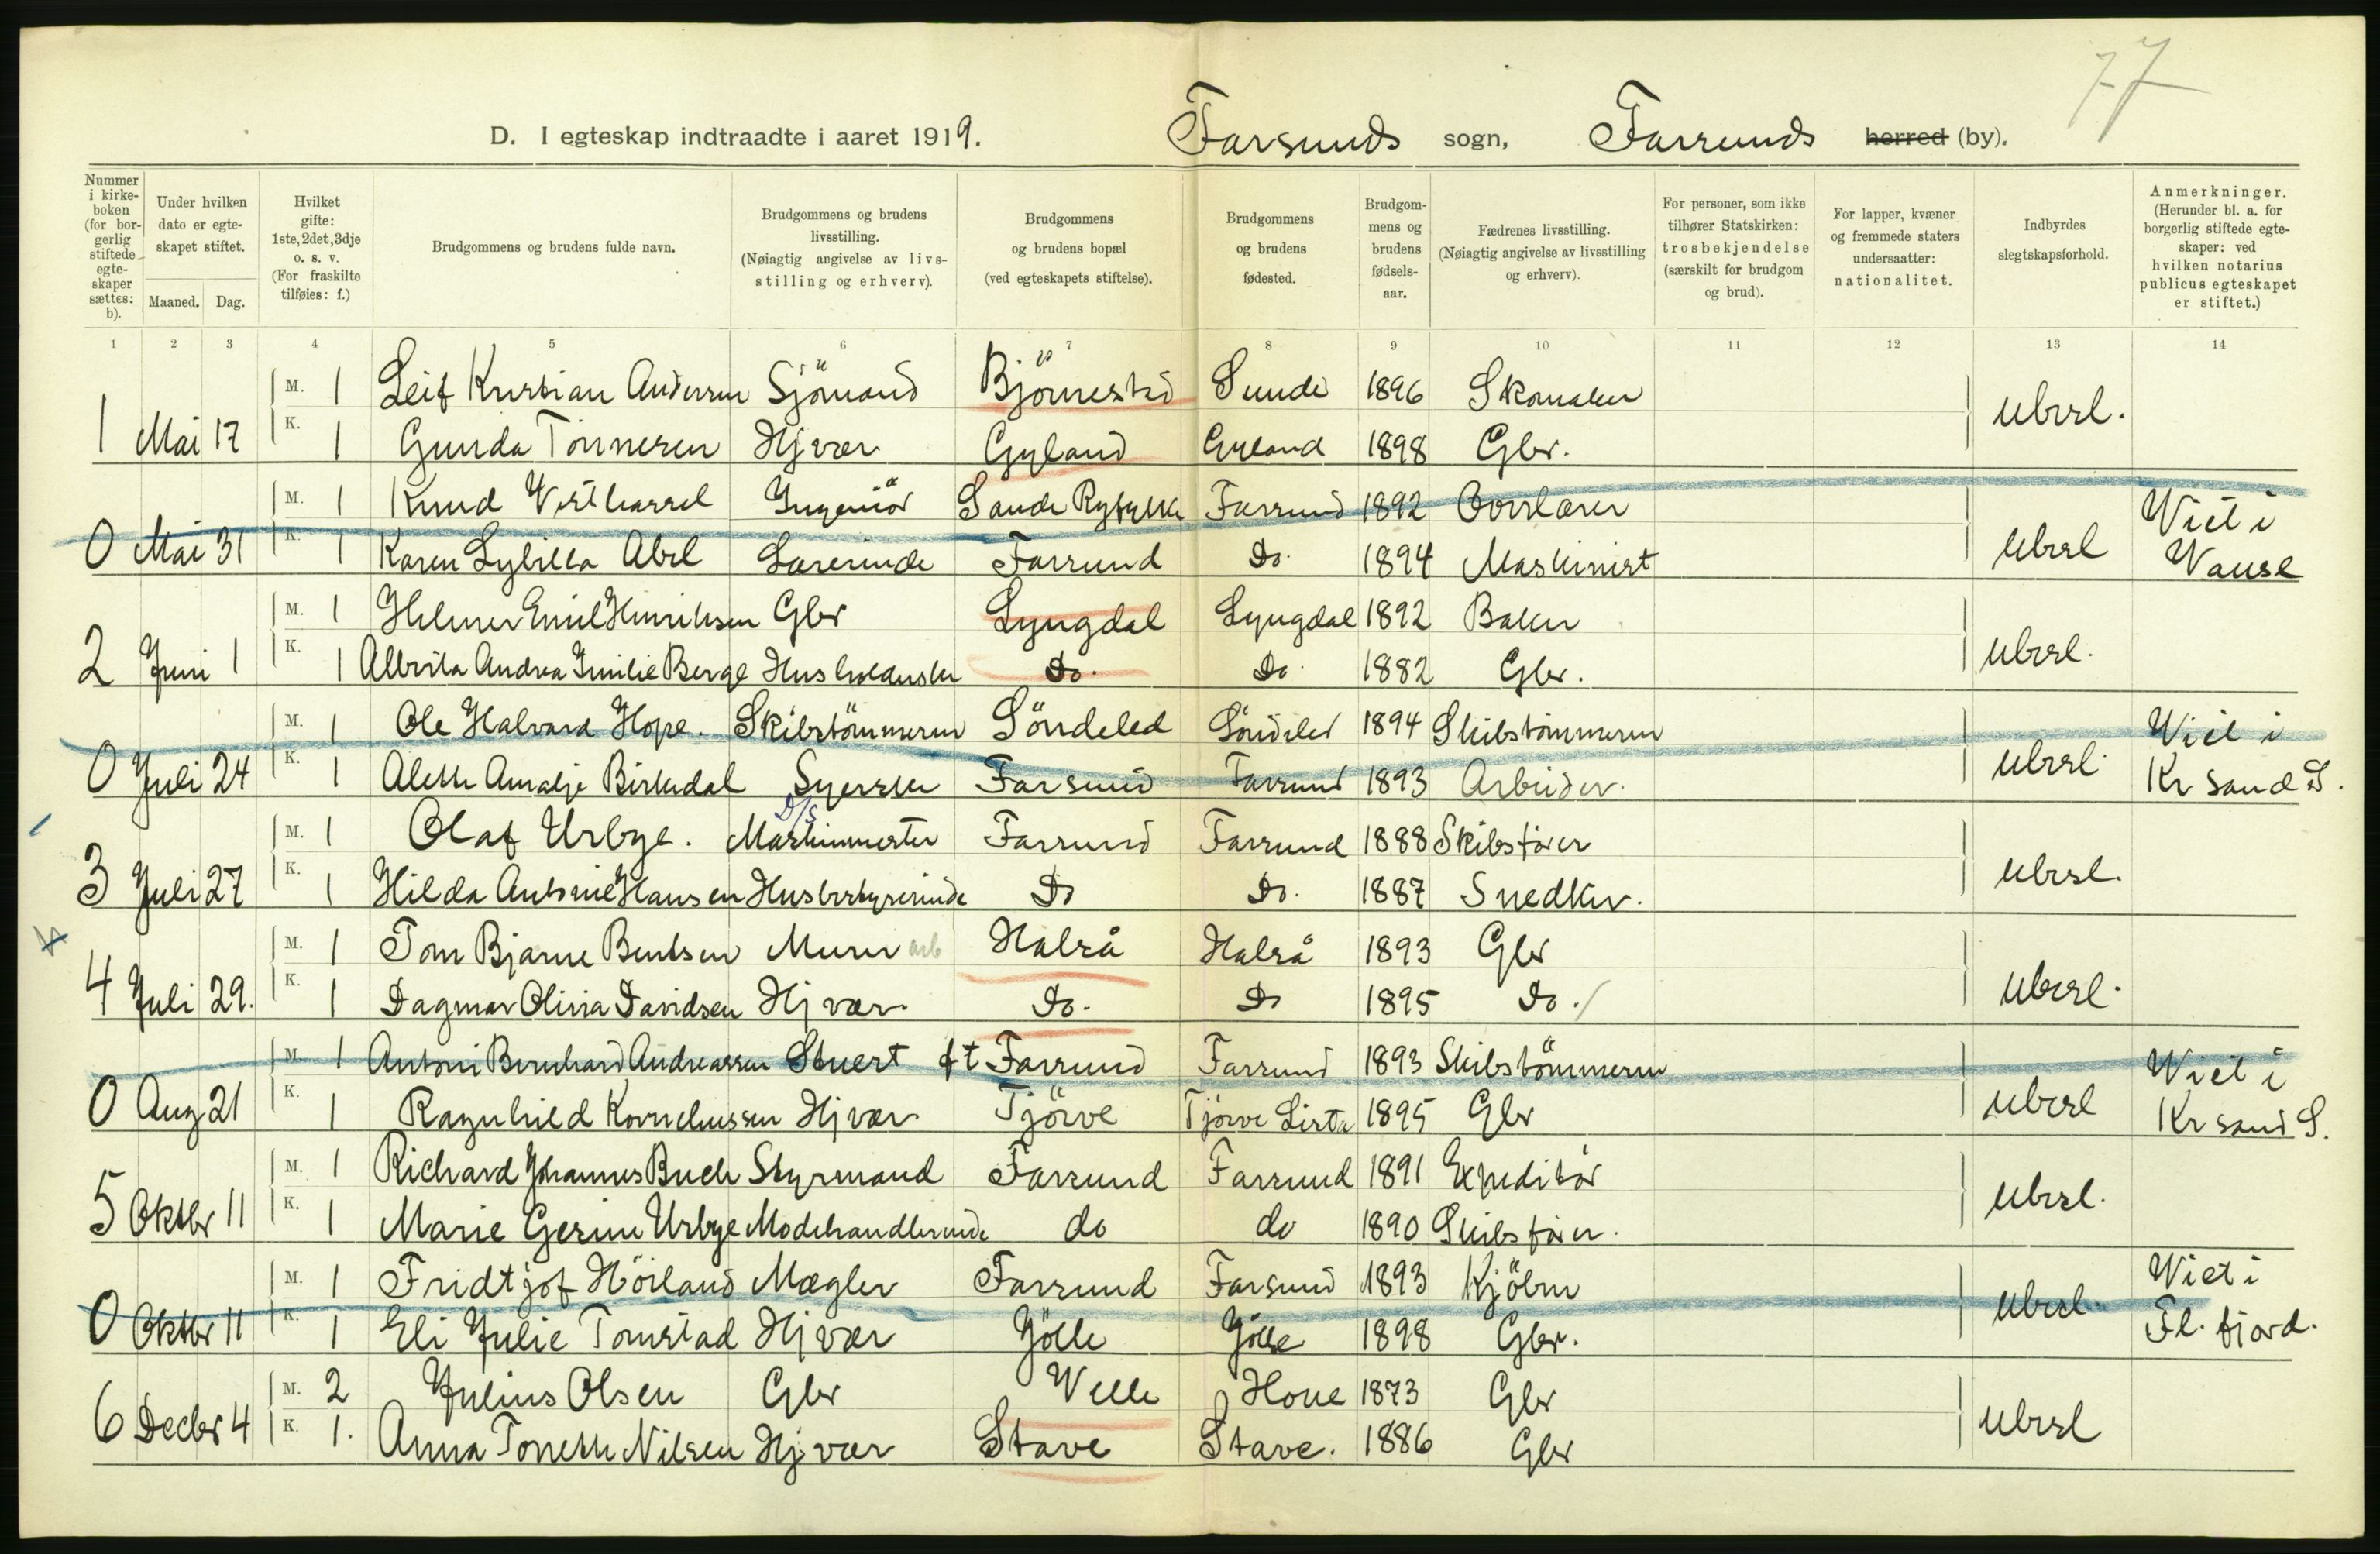 77
D. I egteskap indtraadte i aaret 1919. Farsunds sogn, Farsunds herred (by).
Nummer i kirkeboken (for borgerlig stiftede egteskaper sættes: b). Under hvilken dato er egteskapet stiftet. Maaned. Dag. Hvilket gifte: 1ste, 2det, 3dje o. s. v. (For fraskilte tilføies: f.) Brudgommens og brudens fulde navn. Brudgommens og brudens livsstilling. (Nøiagtig angivelse av livsstilling og erhverv). Brudgommens og brudens bopæl (ved egteskapets stiftelse). Brudgommens og brudens fødested. Brudgommens og brudens fødselsaar. Fædrenes livsstilling. (Nøiagtig angivelse av livsstilling og erhverv). For personer, som ikke tilhører Statskirken: trosbekjendelse (særskilt for brudgom og brud). For lapper, kvæner og fremmede staters undersaatter: nationalitet. Indbyrdes slegtskapsforhold. Anmerkninger. (Herunder bl. a. for borgerlig stiftede egteskaper: ved hvilken notarius publicus egteskapet er stiftet.)
1 2 3 4 5 6 7 8 9 10 11 12 13 14
M. 1 Leif Kristian Andersen Sjömand Björnestad Sunde 1896 Skomaker
1 Mai 17 K. 1 Gunda Tönnesen Hj vær Gyland Gyland 1898 Gbr. ubesl.
M. 1 Knud Vesthassel Ingeniör Sande Farsund 1892 Overlærer Viet i
0 Mai 31 K. 1 Karen Abel Lærerinde Farsund Do. 1894 Maskinist ubesl Vanse
M. 1 Helmer Emil Henriksen Gbr Lyngdal Lyngdal 1892 Baker
2 Juni 1 K. 1 Andrea Emilie Berge Husholderske Do. Do. 1882 Gbr. ubesl.
M. 1 Ole Halvard Hope. Skibstömmerm Söndeled Söndeled 1894 Skibstömmerm Viet i
0 Juli 24 K. 1 Alette Amalje Birkedal Syerske Farsund Farsund 1893 Arbeider. ubesl. Kr sand S.
D/S
M. 1 Olaf Urbye. Maskinmester Farsund Farsund 1888 Skibsförer
3 Juli 27 K. 1 Hilda Antonie Hansen Husbestyrerinde Do Do. 1887 Snedker. ubesl.
M. 1 Tom Bjarne Bentsen Murer arb Halså Halså 1893 Gbr
4 Juli 29. K. 1 Dagmar Olivia Davidsen Hj vær. Do. Do 1895 Do. ubesl.
M. 1 Antoni Bernhard Andreassen Stuert ft Farsund Farsund 1893 Skibstömmerm Viet i
0 Aug 21 K. 1 Ragnhild Korneliussen Hj vær Tjörve Tjörve Lista 1895 Gbr ubesl Kr sand S.
M. 1 Richard Johannes Buch Styrmand Farsund Farsund 1891 Expeditör
5 Oktbr 11 K. 1 Marie Gerine Urbye Modehandlerinde do do 1890 Skibsförer. ubesl.
M. 1 Fridtjof Höiland Mægler Farsund Farsund 1893 Kjöbm Viet i
0 Oktbr 11 K. 1 Eli Julie Tomstad Hj vær Jölle Jölle 1898 Gbr. ubesl. Fl. fjord.
M. 2 Julius Olsen Gbr Velle Hove 1873 Gbr
6 Decbr 4 K. 1. Anna Tonette Nilsen Hj vær Stave Stave. 1886 Gbr ubesl